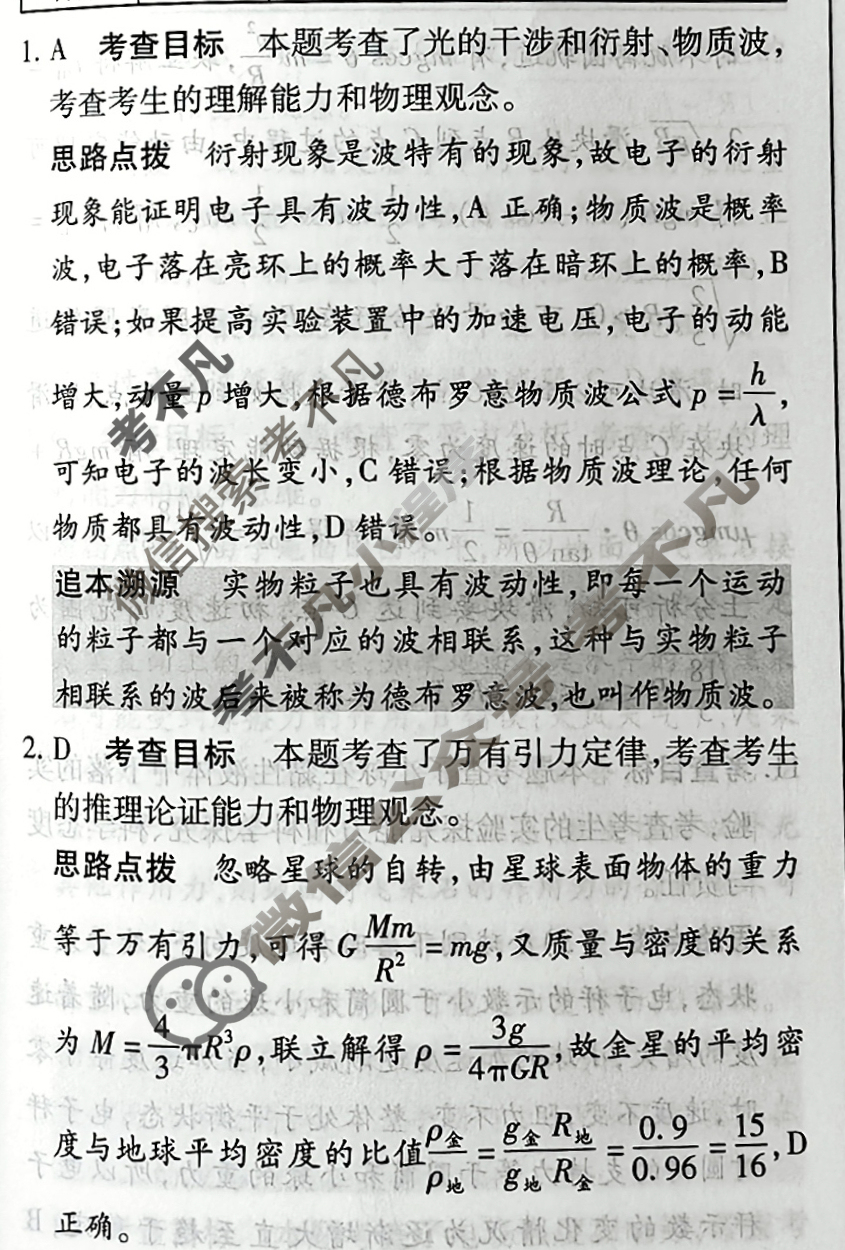 1. A 考查目标 本题考查了光的干涉和衍射、物质波,
考查考生的理解能力和物理观念。
思路点拨 衍射现象是波特有的现象,故电子的衍射
现象能证明电子具有波动性,A 正确;物质波是概率
波,电子落在亮环上的概率大于落在暗环上的概率,B
错误;如果提高实验装置中的加速电压,电子的动能
增大,动量 p 增大,根据德布罗意物质波公式 p = h/λ,
可知电子的波长变小,C 错误;根据物质波理论,任何
物质都具有波动性,D 错误。
追本溯源 实物粒子也具有波动性,即每一个运动
的粒子都与一个对应的波相联系,这种与实物粒子
相联系的波后来被称为德布罗意波,也叫作物质波。
2. D 考查目标 本题考查了万有引力定律,考查考生
的推理论证能力和物理观念。
思路点拨 忽略星球的自转,由星球表面物体的重力
等于万有引力,可得 G Mm/R² = mg,又质量与密度的关系
为 M = 4/3 πR³ρ,联立解得 ρ = 3g/4πGR,故金星的平均密
度与地球平均密度的比值 ρ金/ρ地 = g金 R地/g地 R金 = 0.9/0.96 = 15/16,D
正确。
考不凡
微信搜索 考不凡
考不凡小程序
微信公众号 考不凡